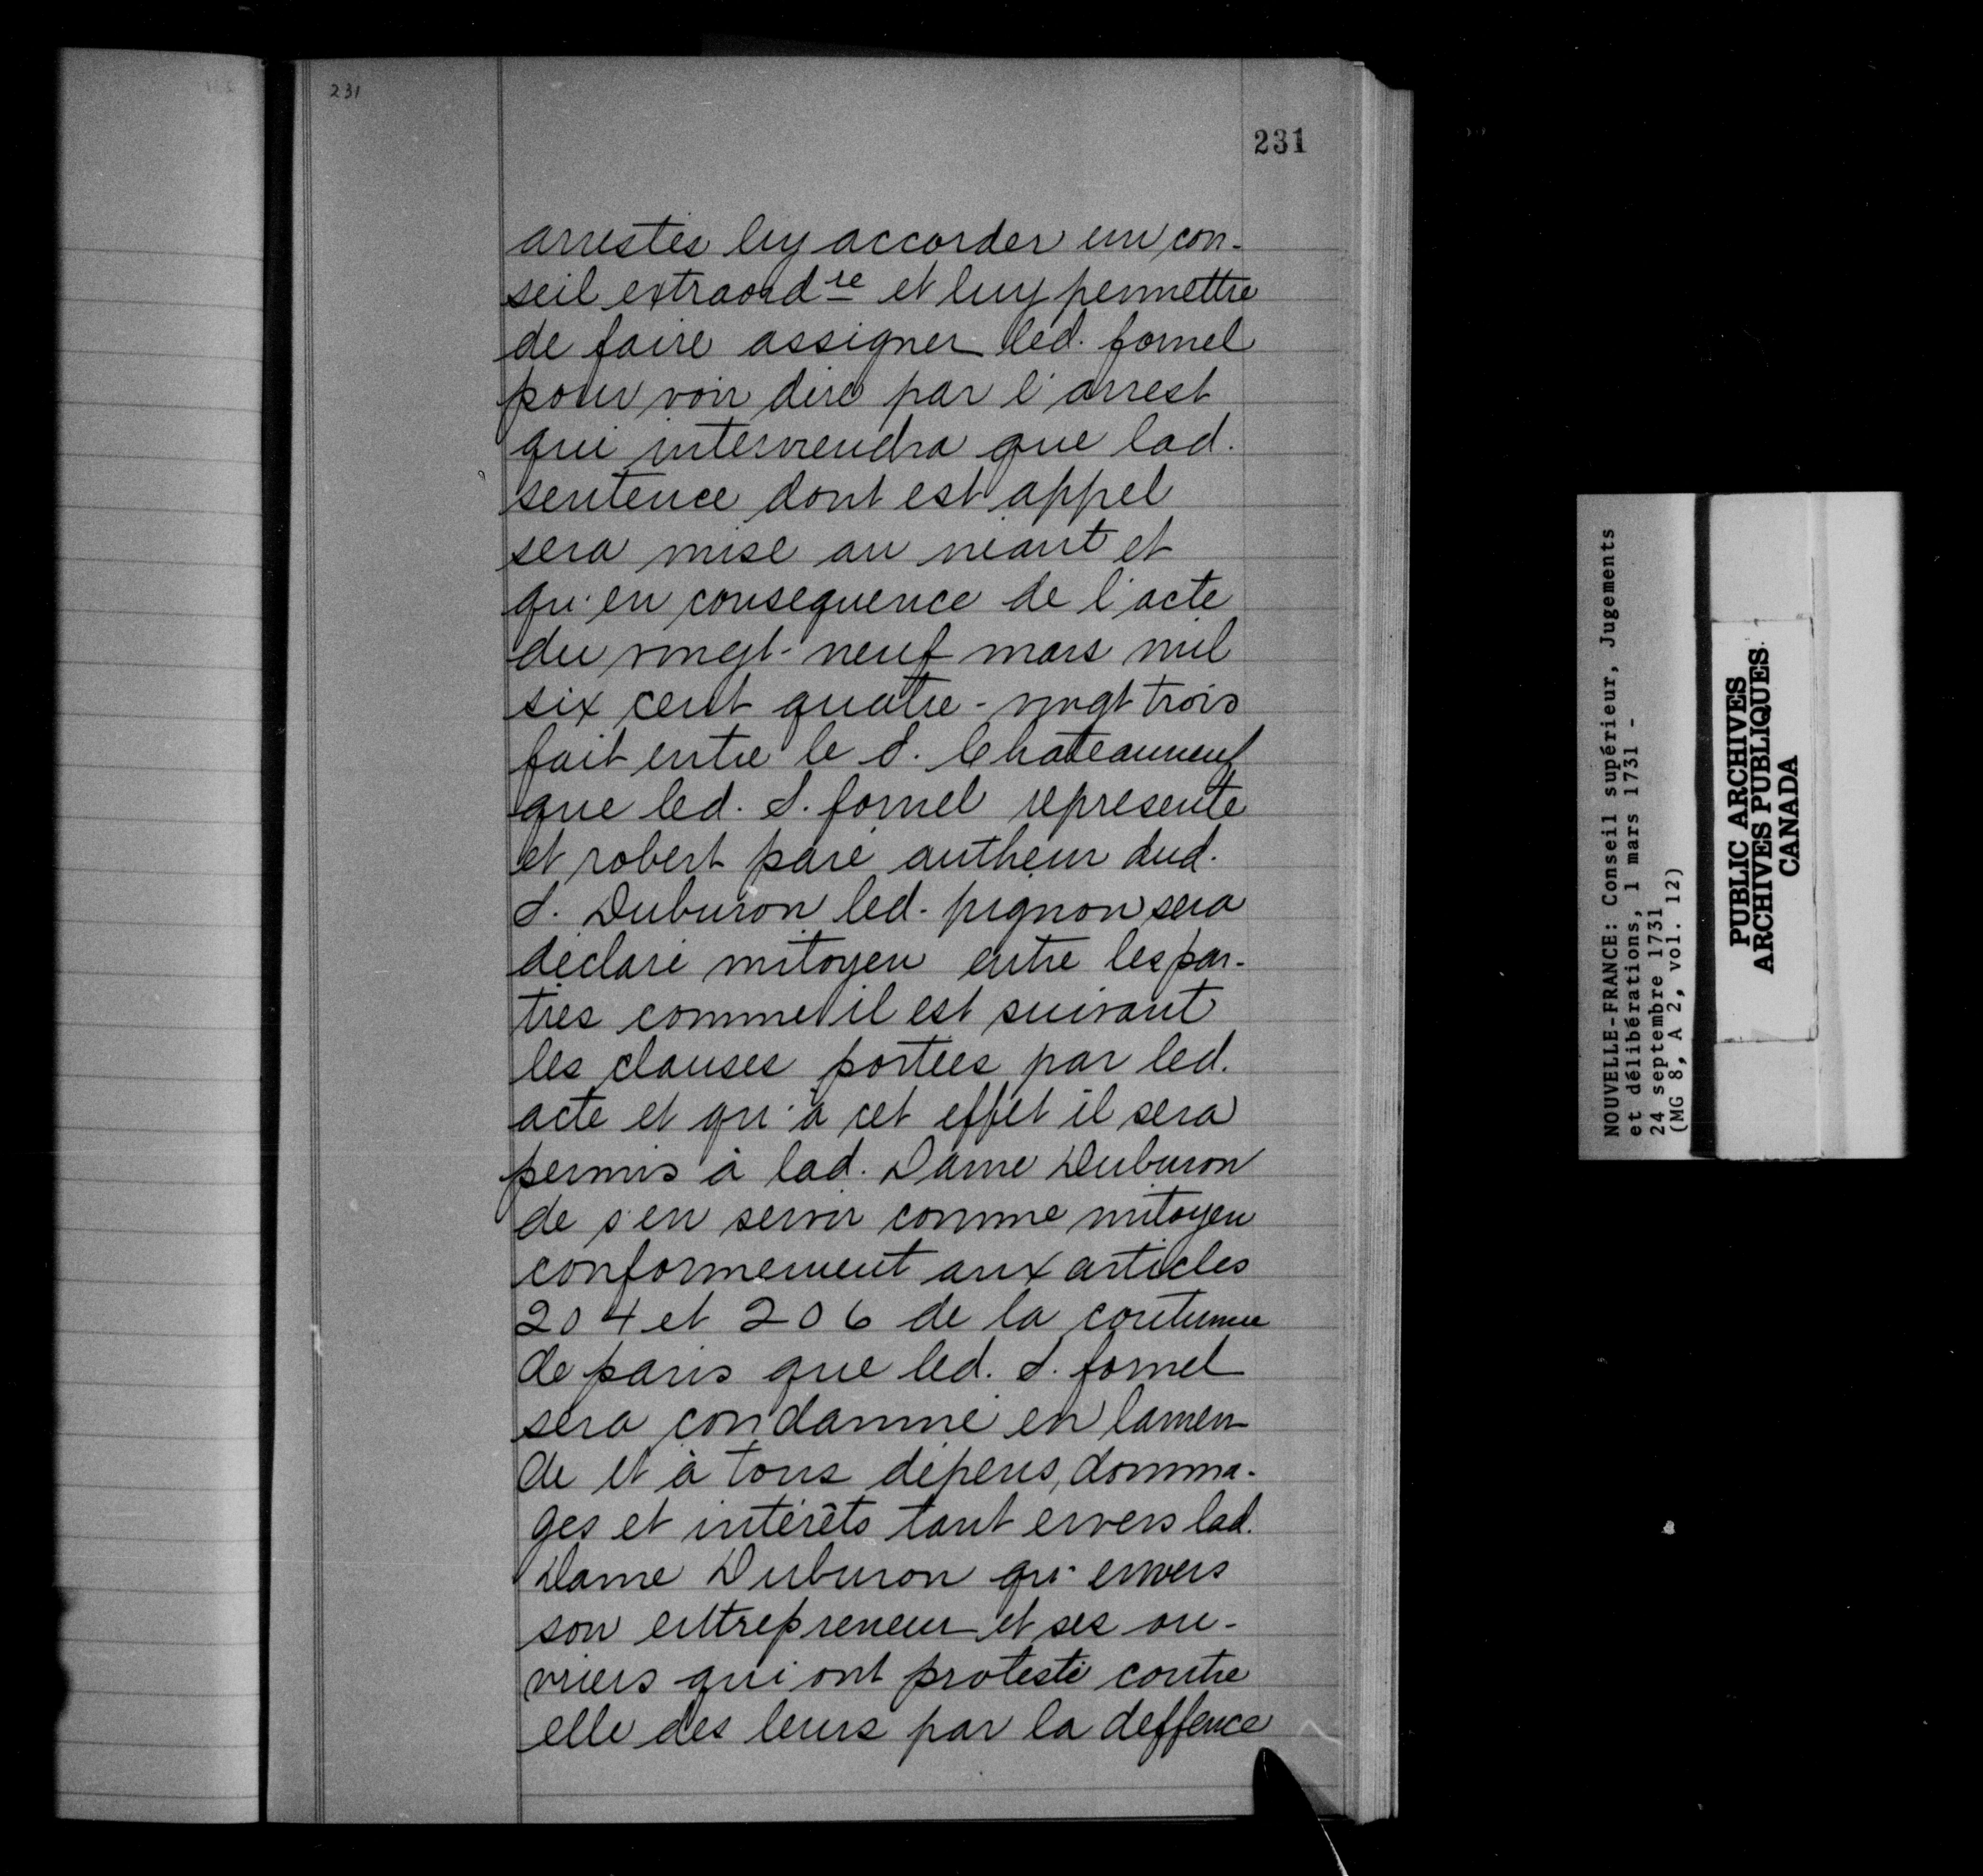 231
231
arrestés luy accorder un con-
seil extraordre et luy permettre
de faire assigner led. fornel
pour voir dire par l'arrest
qui interviendra que lad.
sentence dont est appel
sera mise au neant et
qu'en consequence de l'acte
du vingt-neuf mars mil
six cent quatre-vingt trois
fait entre le S. Chateauneuf
que led. S. fornel represente
et robert paré autheur dud.
S. Duburon led. pignon sera
declaré mitoyen entre les par-
ties comme il est suivant
les clauses portées par led.
acte et qu'à cet effet il sera
permis à lad. Dame Duburon
de s'en servir comme mitoyen
conformement aux articles
204 et 206 de la coutume
de paris que led. S. fornel
sera condamné en lamen
de et à tous dépens, domma-
ges et intérêts tant envers lad.
Dame Duburon qu'envers
son entrepreneur et ses ou-
vriers qui ont protesté contre
elle des leurs par la deffence
NOUVELLE-FRANCE: Conseil supérieur, Jugements
et délibérations, 1 mars 1731 -
24 septembre 1731
(MG 8, A 2, vol. 12)
PUBLIC ARCHIVES
ARCHIVES PUBLIQUES
CANADA